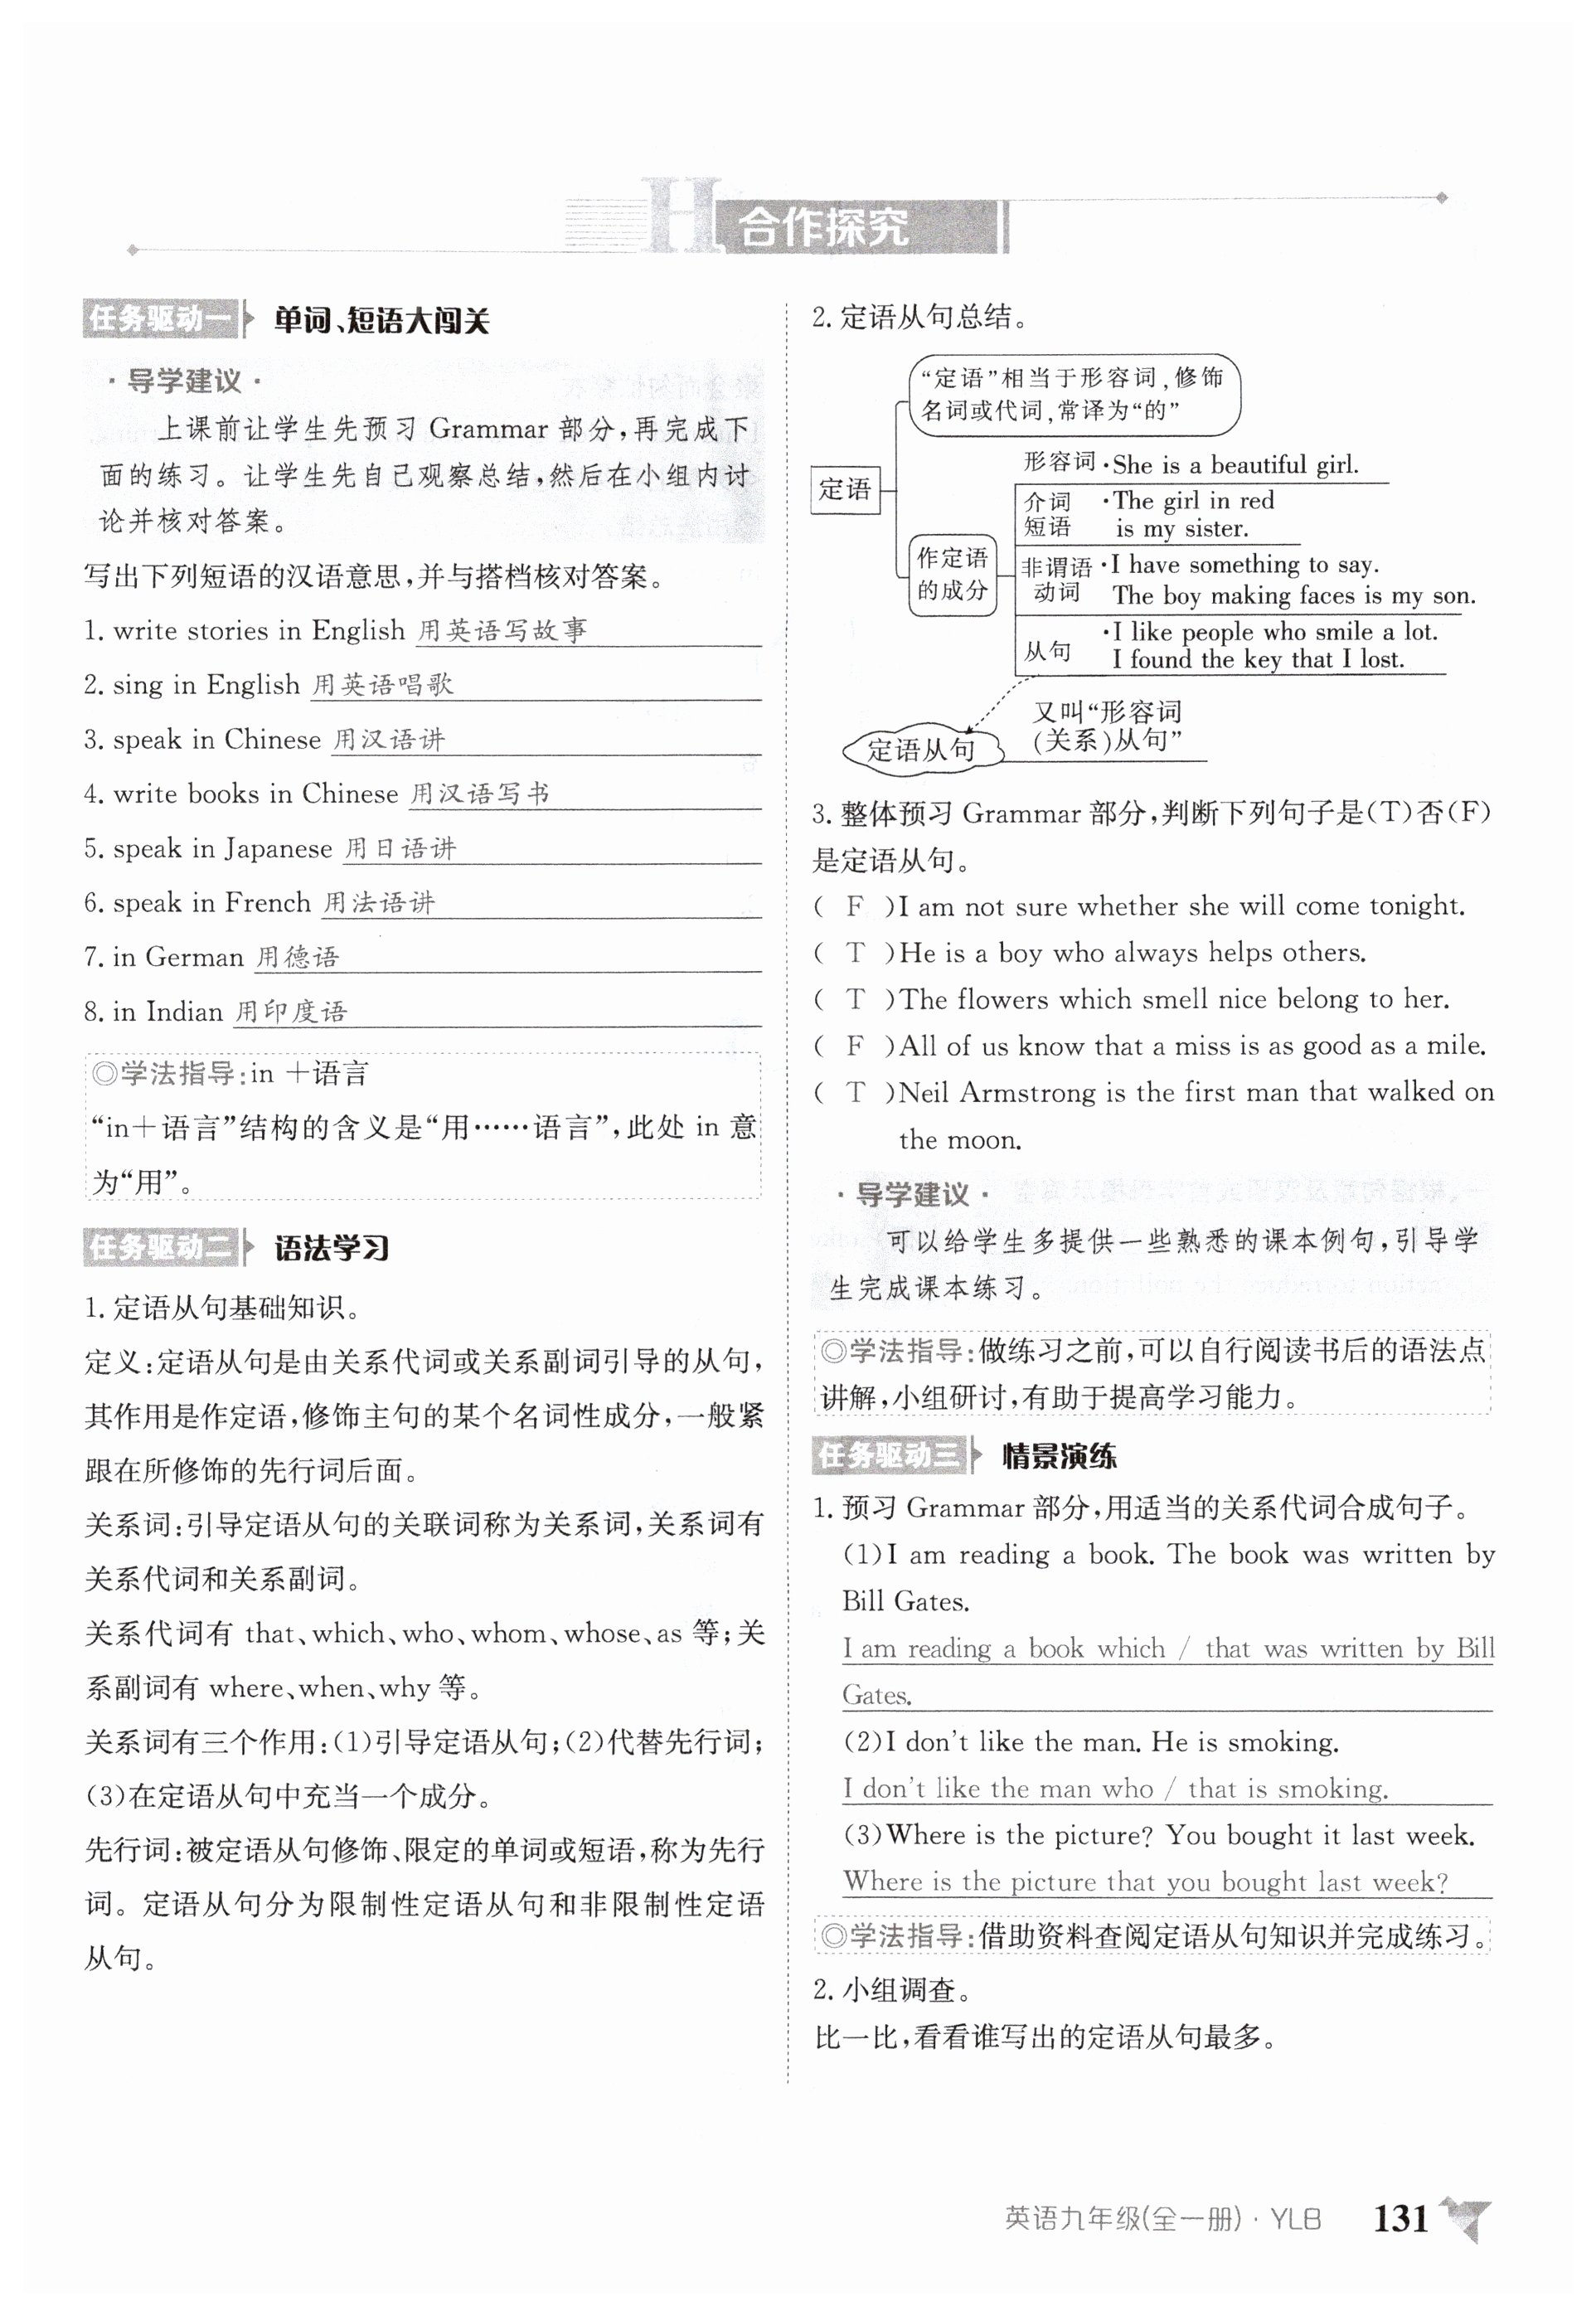 H 合作探究
任务驱动一 单词、短语大闯关
·导学建议·
上课前让学生先预习 Grammar 部分,再完成下
面的练习。让学生先自己观察总结,然后在小组内讨
论并核对答案。
写出下列短语的汉语意思,并与搭档核对答案。
1. write stories in English 用英语写故事
2. sing in English 用英语唱歌
3. speak in Chinese 用汉语讲
4. write books in Chinese 用汉语写书
5. speak in Japanese 用日语讲
6. speak in French 用法语讲
7. in German 用德语
8. in Indian 用印度语
◎学法指导:in +语言
“in+语言”结构的含义是“用……语言”,此处 in 意
为“用”。
任务驱动二 语法学习
1. 定语从句基础知识。
定义:定语从句是由关系代词或关系副词引导的从句,
其作用是作定语,修饰主句的某个名词性成分,一般紧
跟在所修饰的先行词后面。
关系词:引导定语从句的关联词称为关系词,关系词有
关系代词和关系副词。
关系代词有 that、which、who、whom、whose、as 等;关
系副词有 where、when、why 等。
关系词有三个作用:(1)引导定语从句;(2)代替先行词;
(3)在定语从句中充当一个成分。
先行词:被定语从句修饰、限定的单词或短语,称为先行
词。定语从句分为限制性定语从句和非限制性定语
从句。
2. 定语从句总结。
“定语”相当于形容词,修饰
名词或代词,常译为“的”
定语
作定语
的成分
形容词·She is a beautiful girl.
介词 ·The girl in red
短语 is my sister.
非谓语·I have something to say.
动词 The boy making faces is my son.
从句 ·I like people who smile a lot.
I found the key that I lost.
定语从句
又叫“形容词
(关系)从句”
3. 整体预习 Grammar 部分,判断下列句子是(T)否(F)
是定语从句。
( F )I am not sure whether she will come tonight.
( T )He is a boy who always helps others.
( T )The flowers which smell nice belong to her.
( F )All of us know that a miss is as good as a mile.
( T )Neil Armstrong is the first man that walked on
the moon.
·导学建议·
可以给学生多提供一些熟悉的课本例句,引导学
生完成课本练习。
◎学法指导:做练习之前,可以自行阅读书后的语法点
讲解,小组研讨,有助于提高学习能力。
任务驱动三 情景演练
1. 预习 Grammar 部分,用适当的关系代词合成句子。
(1)I am reading a book. The book was written by
Bill Gates.
I am reading a book which / that was written by Bill
Gates.
(2)I don't like the man. He is smoking.
I don't like the man who / that is smoking.
(3)Where is the picture? You bought it last week.
Where is the picture that you bought last week?
◎学法指导:借助资料查阅定语从句知识并完成练习。
2. 小组调查。
比一比,看看谁写出的定语从句最多。
英语九年级(全一册)·YLB 131